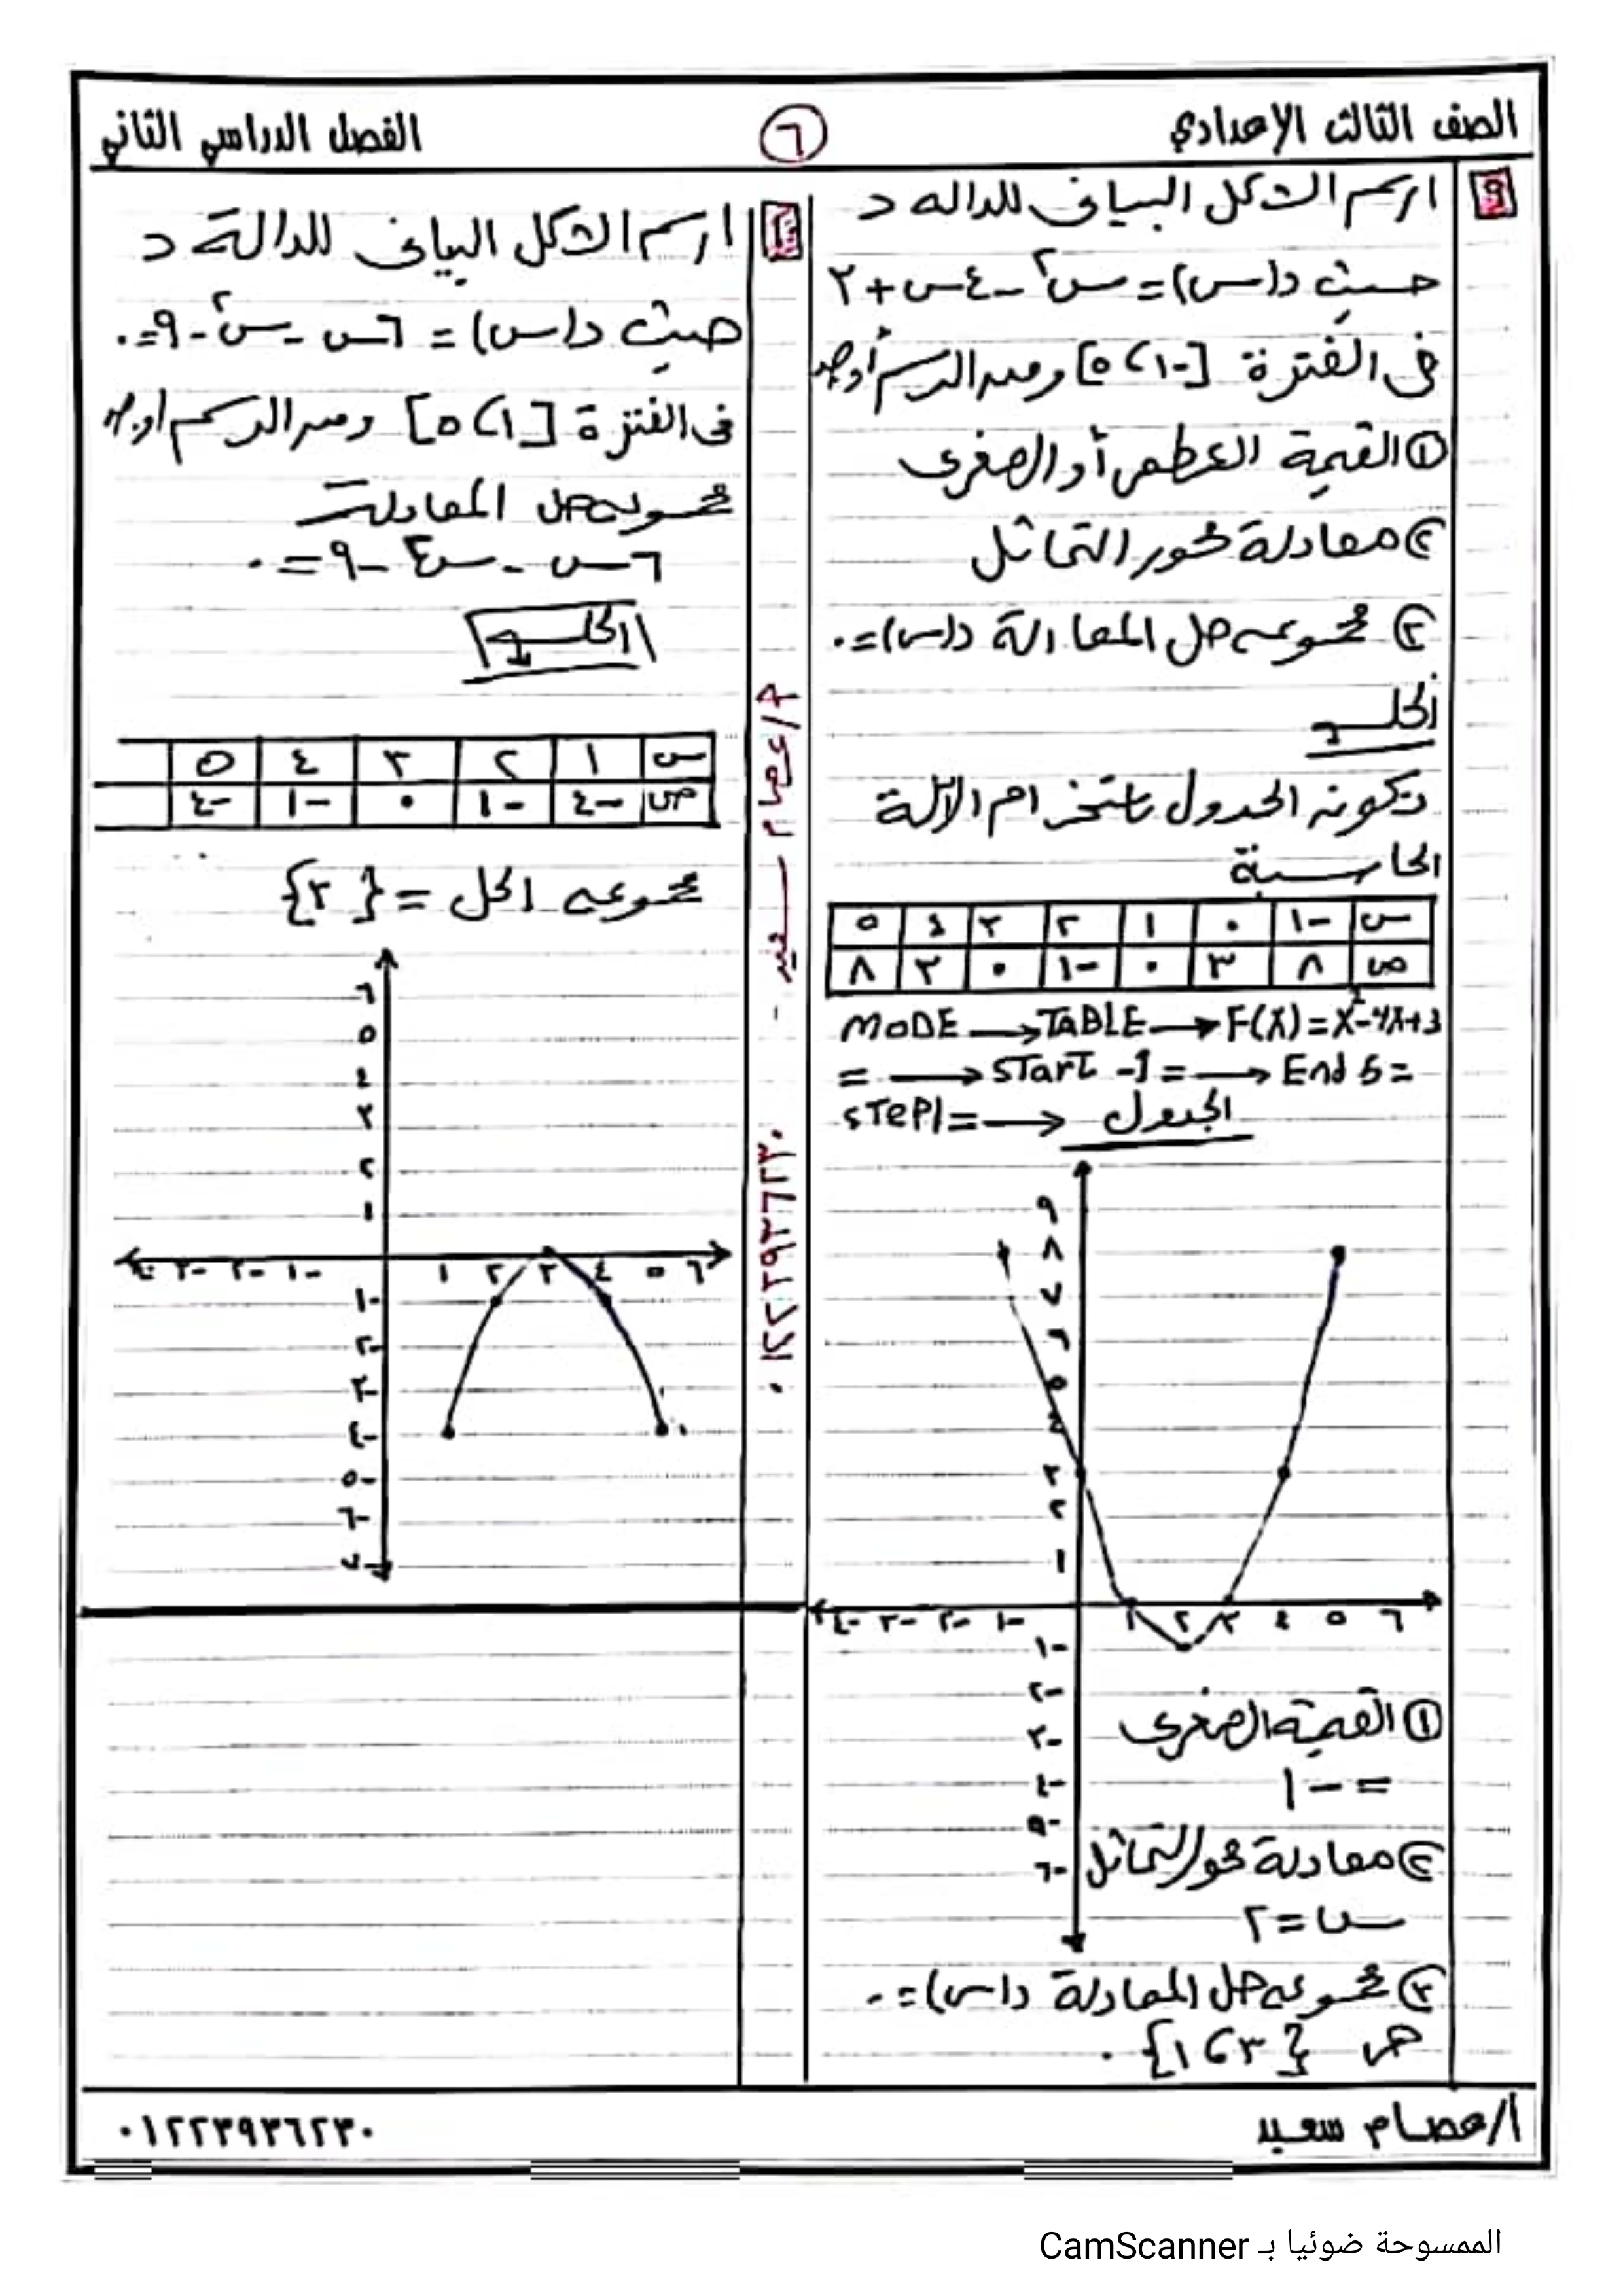 الصف الثالث الإعدادي
٦
الفصل الدراسي الثاني
٩
ارسم الشكل البيانى للداله د
حيث د(س) = س٢ - ٤س + ٣
فى الفترة [-١، ٥] ومن الرسم أوجد
① القيمة العظمى أو الصغرى
② معادلة محور التماثل
③ مجموعه حل المعادلة د(س) = ٠
الحل
نكونه الجدول باستخدام الآلة
الحاسبة
س -١ ٠ ١ ٢ ٣ ٤ ٥
ص ٨ ٣ ٠ -١ ٠ ٣ ٨
MODE → TABLE → F(X) = X²-4X+3
= → START -1 = → End 5 =
STEP1 = → الجدول
٩
٨
٧
٦
٥
٤
٣
٢
١
-٤ -٣ -٢ -١ ١ ٢ ٣ ٤ ٥ ٦
-١
-٢
-٣
-٤
-٥
-٦
① القيمة الصغرى
= -١
② معادلة محور التماثل
س = ٢
③ مجموعه حل المعادلة د(س) = ٠
هى {٣، ١}.
١٠
ارسم الشكل البيانى للدالة د
حيث د(س) = ٦س - س٢ - ٩ = ٠
فى الفترة [١، ٥] ومن الرسم أوجد
مجموعه حل المعادلة
٦س - س٢ - ٩ = ٠
الحل
س ١ ٢ ٣ ٤ ٥
ص -٤ -١ ٠ -١ -٤
مجموعه الحل = {٣}
٦
٥
٤
٣
٢
١
-٤ -٣ -٢ -١ ١ ٢ ٣ ٤ ٥ ٦
-١
-٢
-٣
-٤
-٥
-٦
-٧
أ/عصام سعيد - ٠١٢٢٣٩٣٦٢٣٠
أ/عصام سعيد
٠١٢٢٣٩٣٦٢٣٠
الممسوحة ضوئيا بـ CamScanner